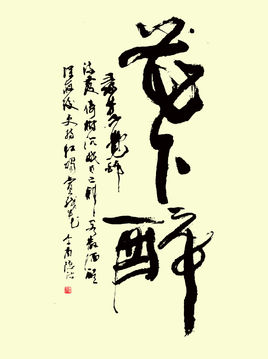 花下醉
尋芳不覺醉
流霞倚树沉眠日已斜客散酒醒
深夜後更持红燭賞残花
李商隐